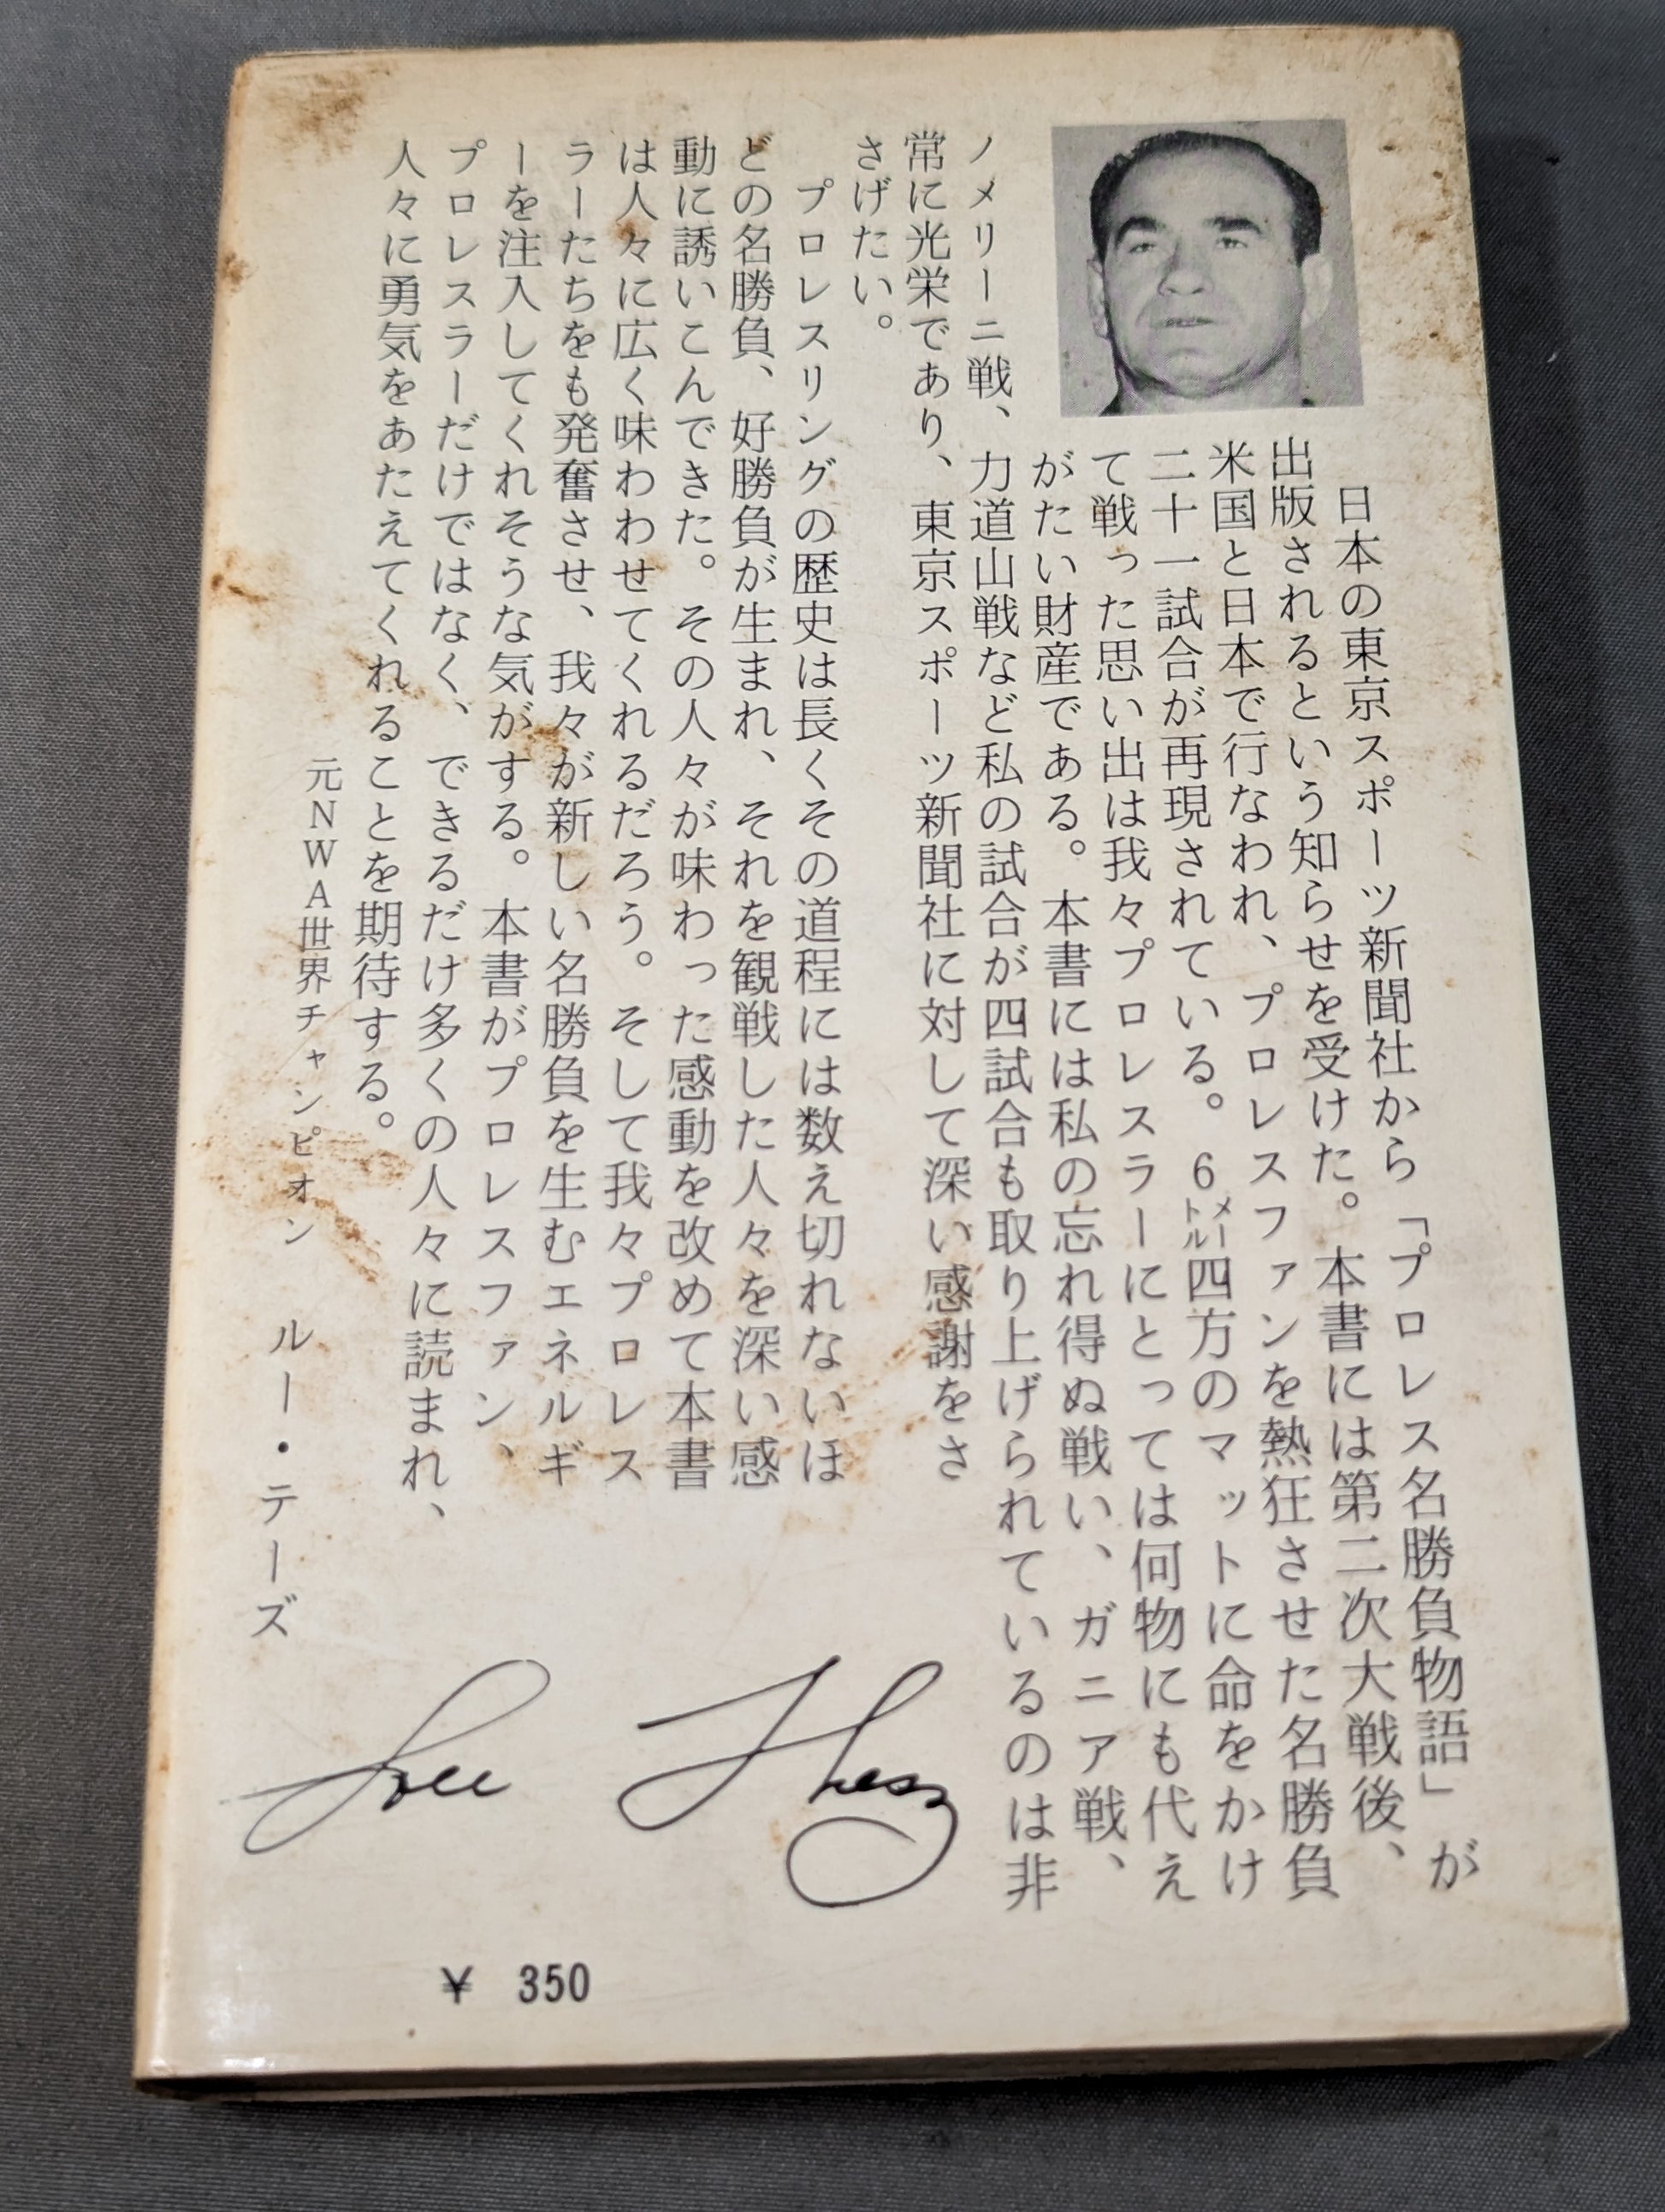 日本の東京スポーツ新聞社から「プロレス名勝負物語」が
出版されるという知らせを受けた。本書には第二次大戦後、
米国と日本で行なわれ、プロレスファンを熱狂させた名勝負
二十一試合が再現されている。6メートル四方のマットに命をかけ
て戦った思い出は我々プロレスラーにとっては何物にも代え
がたい財産である。本書には私の忘れ得ぬ戦い、ガニア戦、
ノメリーニ戦、力道山戦など私の試合が四試合も取り上げられているのは非
常に光栄であり、東京スポーツ新聞社に対して深い感謝をさ
さげたい。
プロレスリングの歴史は長くその道程には数え切れないほ
どの名勝負、好勝負が生まれ、それを観戦した人々を深い感
動に誘いこんできた。その人々が味わった感動を改めて本書
は人々に広く味わわせてくれるだろう。そして我々プロレス
ラーたちをも発奮させ、我々が新しい名勝負を生むエネルギ
ーを注入してくれそうな気がする。本書がプロレスファン、
プロレスラーだけではなく、できるだけ多くの人々に読まれ、
人々に勇気をあたえてくれることを期待する。
元NWA世界チャンピオン　ルー・テーズ
Lou Thesz
¥ 350